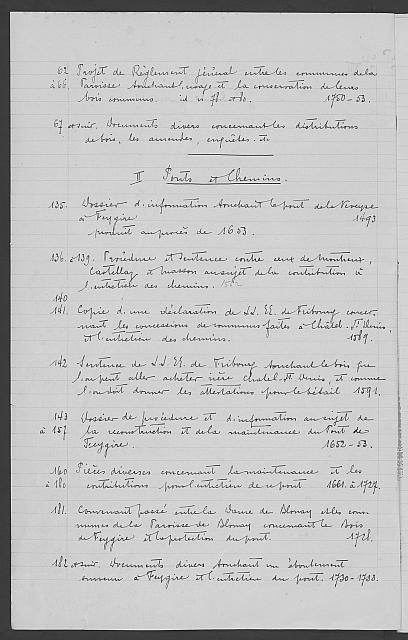 62 Projet de Règlement général entre les communes de la
à 66. Paroisse touchant l'usage et la conservation de leurs
bois communs. id. n. 78. et 80. 1750-53.
67 et suiv. Documents divers concernant les distributions
de bois, les amendes, enquêtes. etc
II Ponts et Chemins.
135. Dossier d'information touchant le pont de la Veveyse
à Feygire 1493
produit au procès de 1653.
136. à 139. Procédure et sentence contre ceux de
Castellaz et Masson au sujet de la contribution à
l'entretien des chemins.
140
141. Copie d'une déclaration de LL. EE. de Fribourg concer-
nant les concessions de communes faites à Châtel. St Denis,
et l'entretien des chemins. 1589.
142 Sentence de LL. EE. de Fribourg touchant le bois que
l'on peut aller acheter rière Chatel St Denis, et comme
l'on doit donner les attestations pour le bétail 1591.
143 Dossier de procédure et d'information au sujet de
à 157 la reconstruction et de la maintenance du Pont de
Feygire. 1652-53.
160 Pièces diverses concernant la maintenance et les
à 180 contributions pour l'entretien de ce pont 1661 à 1727.
181. Convenant passé entre la Dame de Blonay et les com-
munes de la Paroisse de Blonay concernant les Bois
de Feygire et la protection du pont. 1728.
182 et suiv. Documents divers touchant un éboulement
survenu à Feygire et l'entretien du pont. 1730-1733.